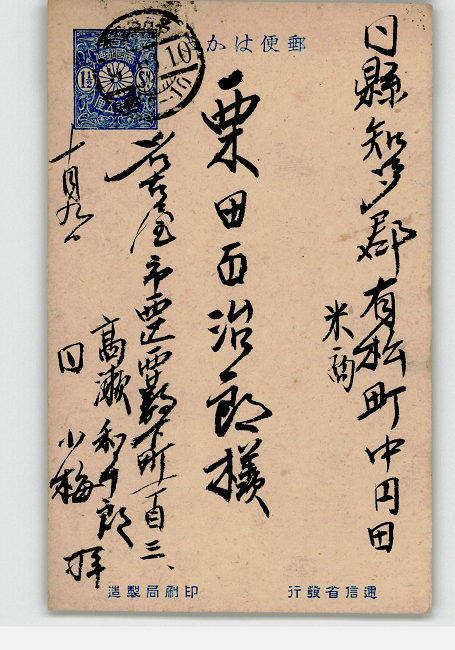 郵便はかき
日縣知多郡有松町中円田
米商
栗田百治郎様
名古屋市西区
下町一百三、
高瀬和十郎
日 小梅 拝
十月九日
1½
10
逓信省發行
印刷局製造